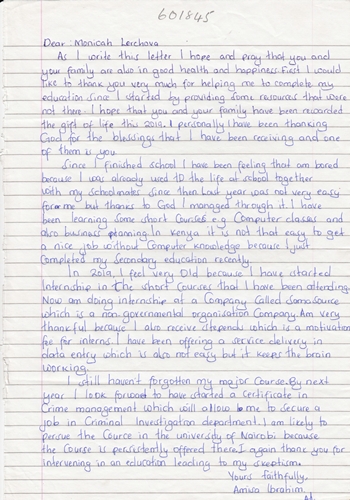 601845
Dear: Monicah Lerchova
As I write this letter I hope and pray that you and
your family are also in good health and happiness. First I would
like to thank you very much for helping me to complete my
education since I started by providing some resources that were
not there. I hope that you and your family have been recorded
the gift of life this 2019. I personally have been thanking
God for the blessings that I have been receiving and one
of them is you.
Since I finished school I have been feeling that am bored
because I was already used to the life at school together
with my schoolmates since then. Last year was not very easy
for me but thanks to God I managed through it. I have
been learning some short courses e.g Computer classes and
also business planning. In Kenya it is not that easy to get
a nice job without Computer knowledge because I just
completed my Secondary education recently.
In 2019, I feel very Old because I have started
Internship in the short courses that I have been attending.
Now am doing internship at a Company called Samasource
which is a non-governmental organisation Company. Am very
thankful because I also receive stependi which is a motivation
fee for interns. I have been offering a service delivery in
data entry which is also not easy but it keeps the brain
working.
I still haven't forgotten my major Course. By next
year I look forward to have started a certificate in
Crime management which will allow me to secure a
job in Criminal Investigation department. I am likely to
persue the Cource in the university of Nairobi because
the Course is persistently offered there. I again thank you for
intervening in an education leading to my skeptism.
Yours faithfully,
Amisa Ibrahim